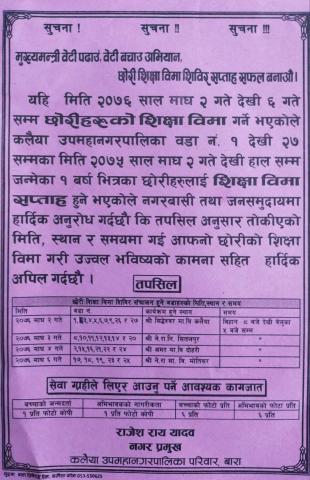 सुचना ! सुचना !! सुचना !!!
मुख्यमन्त्री वेटी पढाउं, वेटी बचाउ अभियान,
छोरी शिक्षा विमा शिविर सप्ताह सफल बनाऔं।
यहि मिति २०७६ साल माघ २ गते देखी ६ गते
सम्म छोरीहरुको शिक्षा विमा गर्ने भएकोले
कलैया उपमहानगरपालिका वडा नं. १ देखी २७
सम्मका मिति २०७५ साल माघ २ गते देखी हाल सम्म
जन्मेका १ बर्ष भित्रका छोरीहरुलाई शिक्षा विमा
सप्ताह हुने भएकोले नगरबासी तथा जनसमुदायमा
हार्दिक अनुरोध गर्दछौ कि तपसिल अनुसार तोकीएको
मिति, स्थान र समयमा गई आफनो छोरीको शिक्षा
विमा गरी उज्वल भविष्यको कामना सहित हार्दिक
अपिल गर्दछौं ।
तपसिल
छोरी शिक्षा विमा शिविर संचालन हुने वडाहरुको मिति,स्थान र समय
मिति वडा नं. कार्यक्रम हुने स्थान समय
२०७६ माघ २ गते श्री सिद्धेश्वर मा.वि कलैया बिहान ८ बजे देखी बेलुका
५ बजे सम्म
२०७६ माघ ३ गते श्री ने.रा.मा. सितलपुर "
२०७६ माघ ४ गते श्री अमर मा.वि दोहरी "
२०७६ माघ ६ गते श्री ने.रा मा. वि. "
सेवा ग्रहीले लिएर आउनु पर्ने आवश्यक कागजात
बच्चाको जन्मदर्ता अभिभावकको नागरीकता बच्चाको फोटो प्रति अभिभावकको फोटो प्रति
१ प्रति फोटो कपी १ प्रति फोटो कापी ६ प्रति ६ प्रति
राजेश राय यादव
नगर प्रमुख
कलैया उपमहानगरपालिका परिवार, बारा